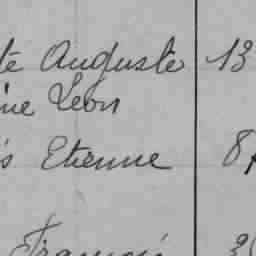 te Auguste 13
ine Léon
is Etienne 8
François 3